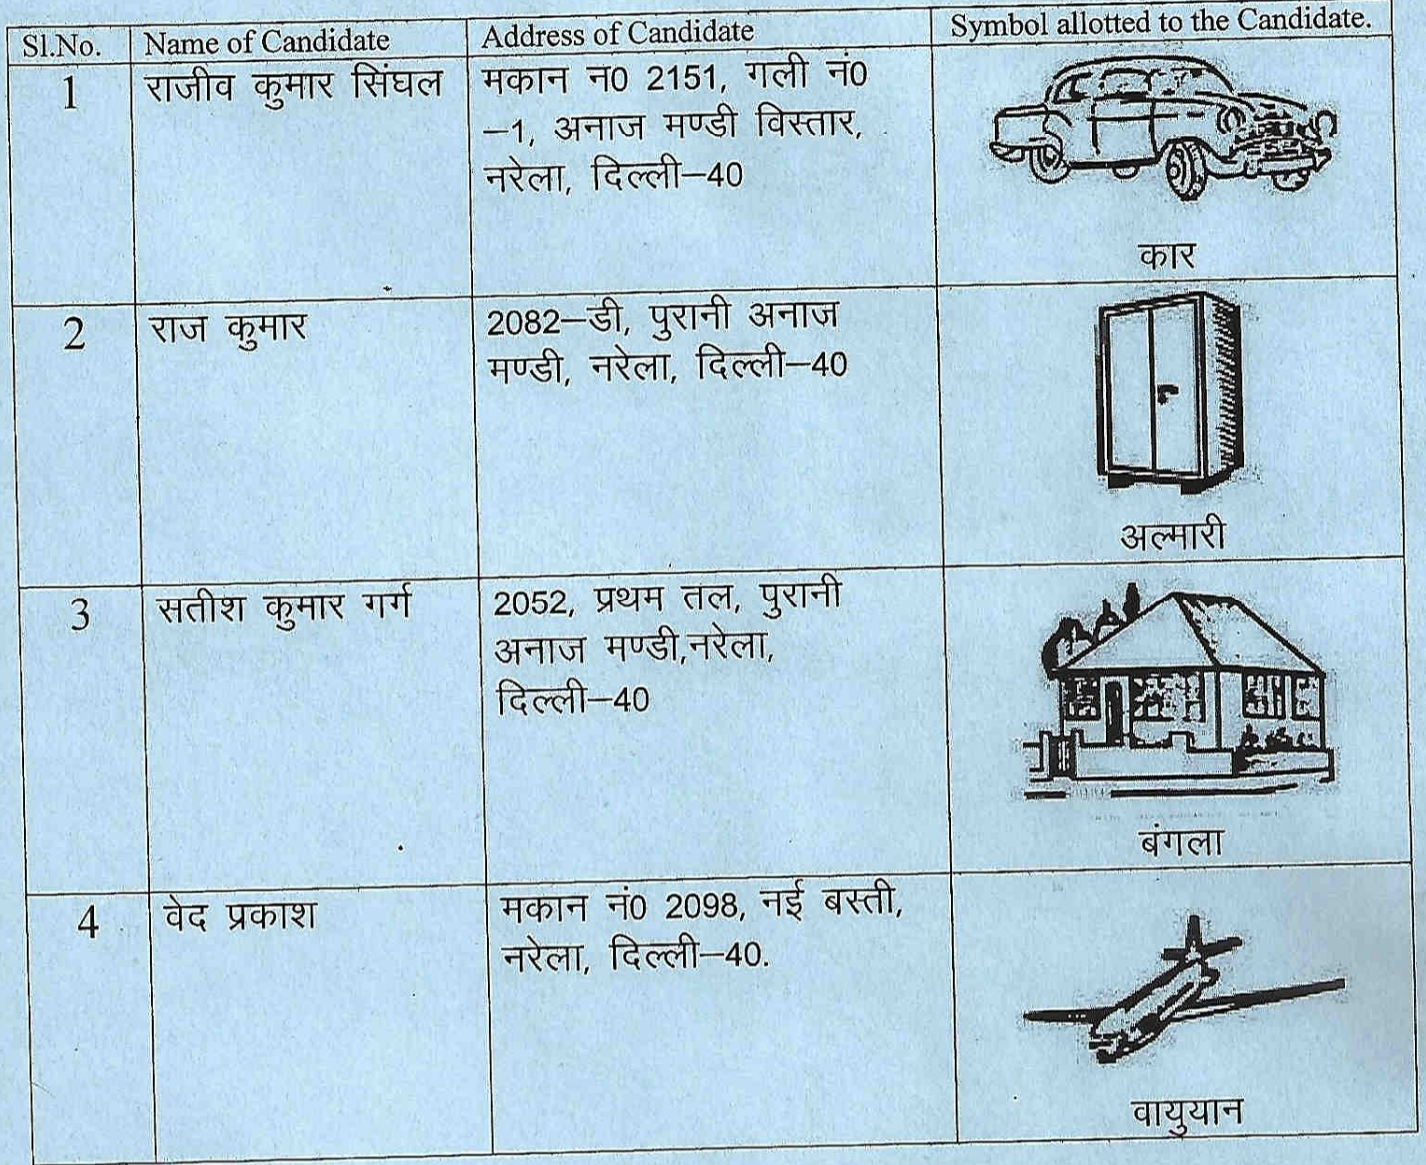 Sl.No. Name of Candidate Address of Candidate Symbol allotted to the Candidate.
1 राजीव कुमार सिंघल मकान न0 2151, गली नं0
–1, अनाज मण्डी विस्तार,
नरेला, दिल्ली–40
कार
2 राज कुमार 2082–डी, पुरानी अनाज
मण्डी, नरेला, दिल्ली–40
अल्मारी
3 सतीश कुमार गर्ग 2052, प्रथम तल, पुरानी
अनाज मण्डी,नरेला,
दिल्ली–40
बंगला
4 वेद प्रकाश मकान नं0 2098, नई बस्ती,
नरेला, दिल्ली–40.
वायुयान